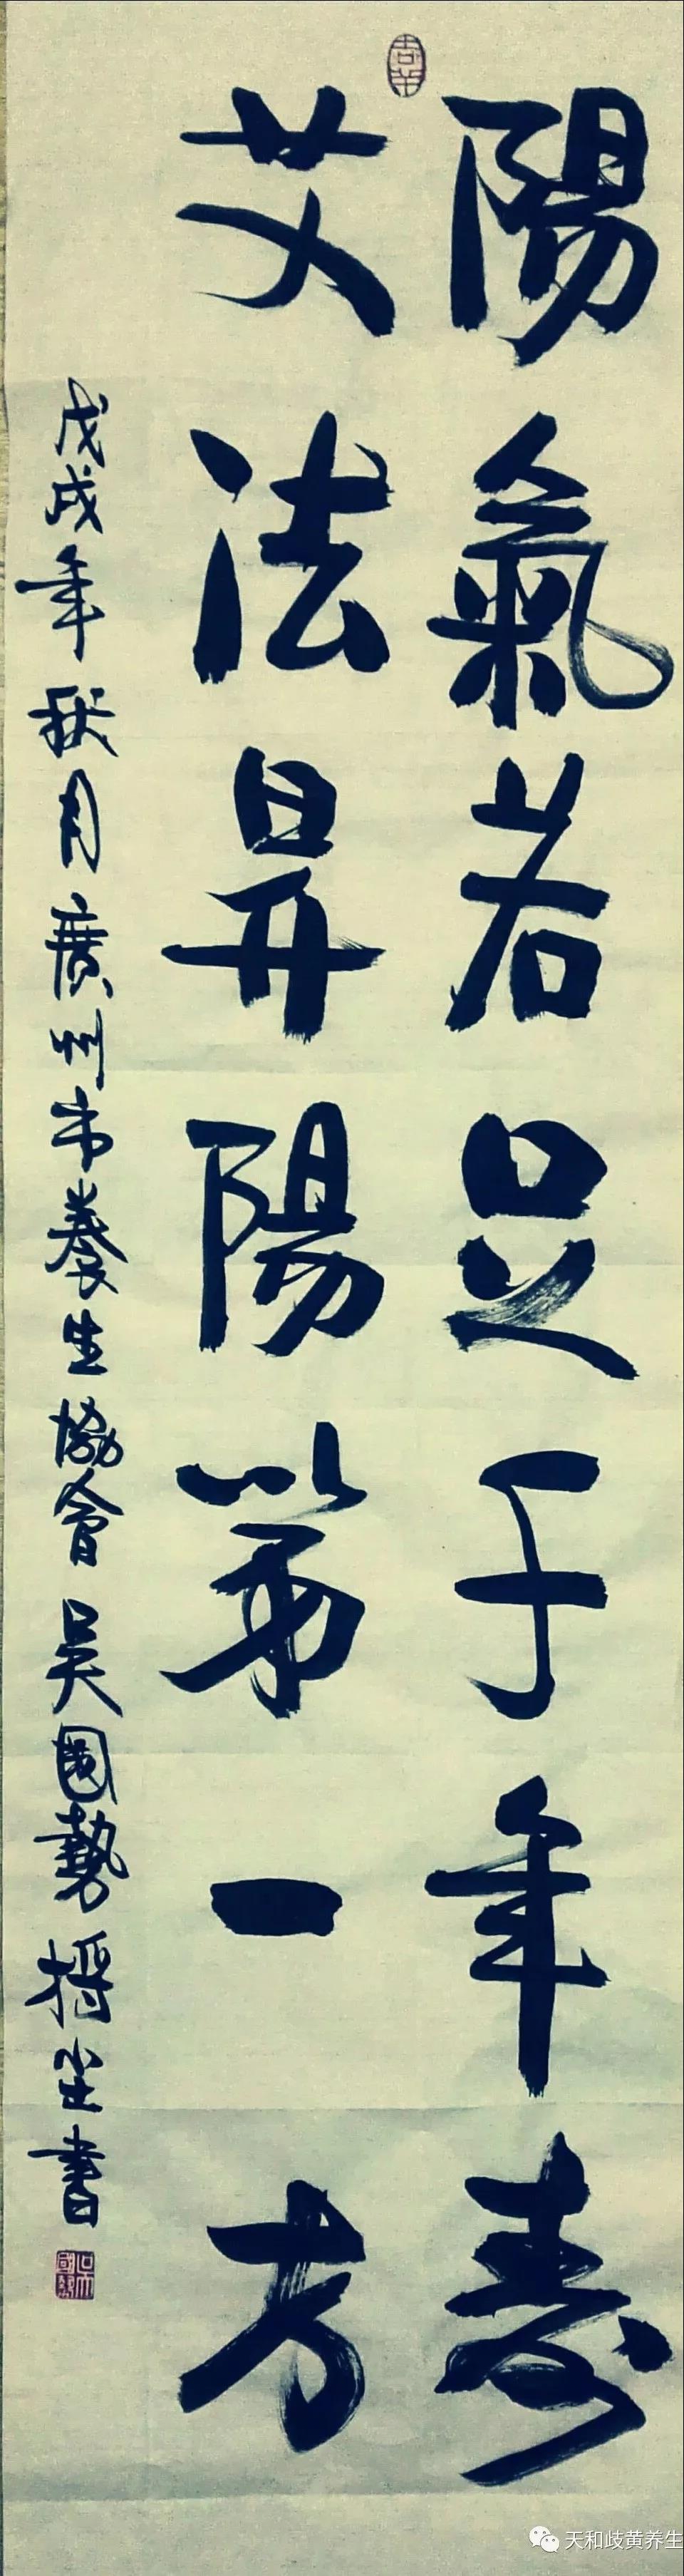 陽氣若足千年壽
艾法昇陽第一方
戊戌年秋月廣州市養生協會吳國勢書
吉羊
天和歧黄养生